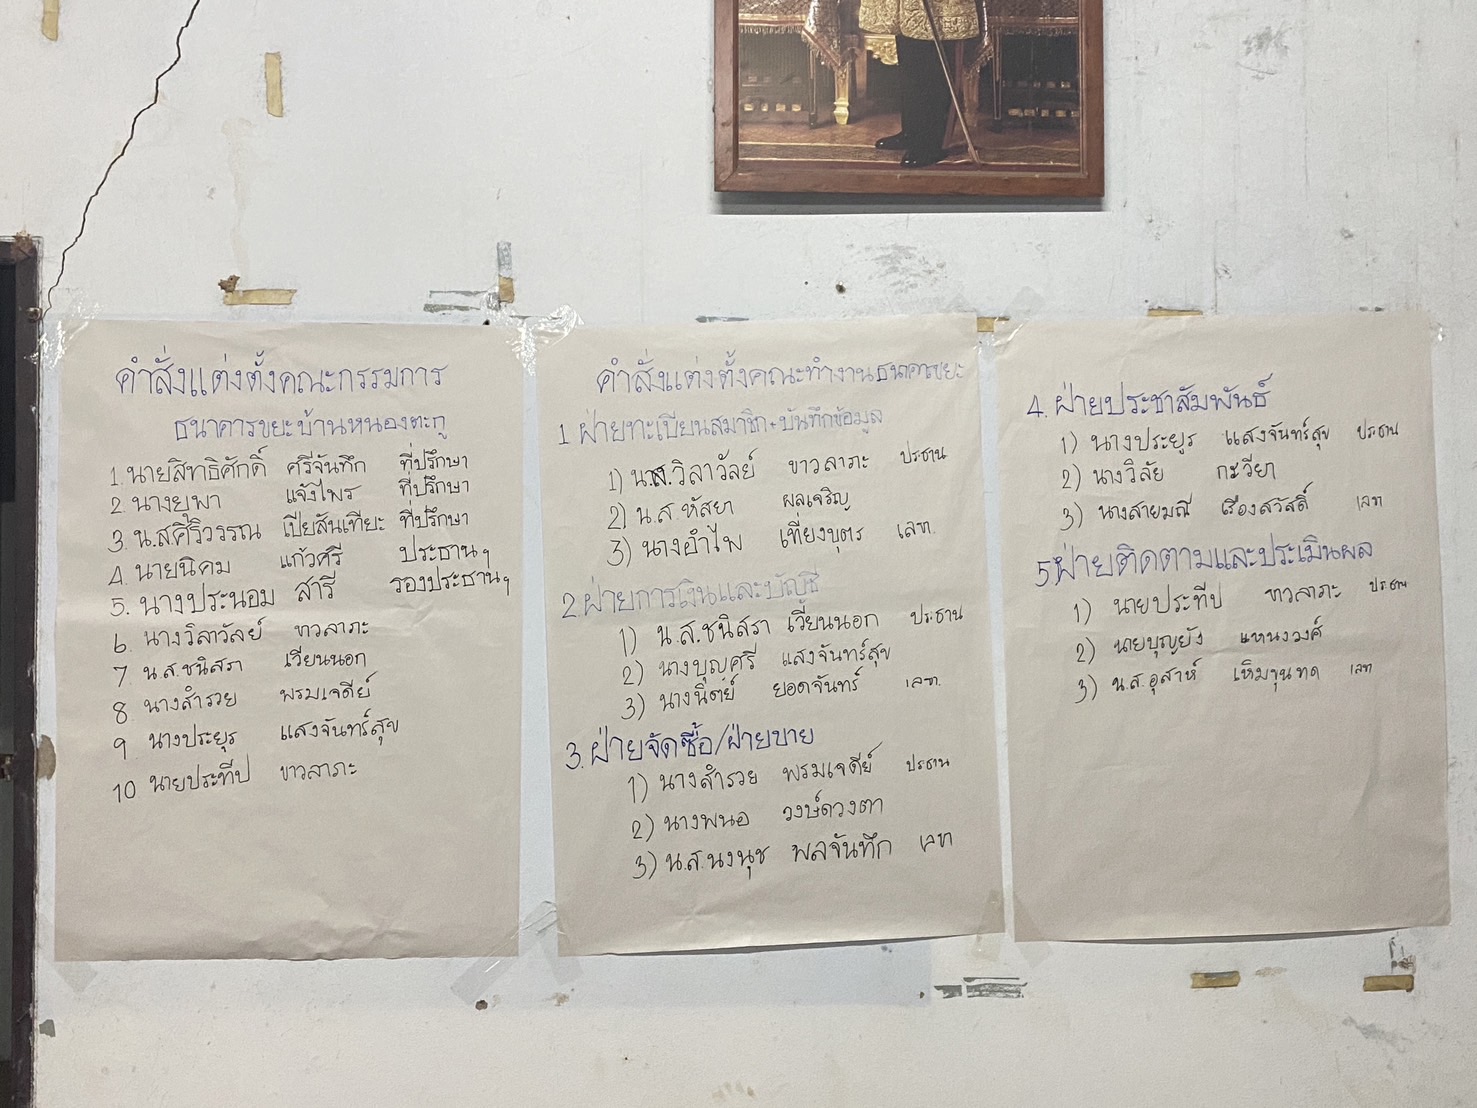 คำสั่งแต่งตั้งคณะกรรมการ
ธนาคารขยะบ้านหนองตะกู
1. นายสิทธิศักดิ์ ศรีจันทึก ที่ปรึกษา
2. นางยุพา แจ้งไพร ที่ปรึกษา
3. น.ส.ศิริวรรณ เปียสันเทียะ ที่ปรึกษา
4. นายนิคม แก้วศรี ประธานฯ
5. นางประนอม สารี รองประธานฯ
6 นางวิลาวัลย์ ขาวลาภะ
7 น.ส.ชนิสรา เวียนนอก
8 นางสำรวย พรมเจดีย์
9 นางประยูร แสงจันทร์สุข
10 นายประทีป ขาวลาภะ
คำสั่งแต่งตั้งคณะทำงานธนาคารขยะ
1 ฝ่ายทะเบียนสมาชิก+บันทึกข้อมูล
1) น.ส.วิลาวัลย์ ขาวลาภะ ประธาน
2) น.ส.หัสยา ผลเจริญ
3) นางอำไพ เที่ยงบุตร เลขา.
2.ฝ่ายการเงินและบัญชี
1) น.ส.ชนิสรา เวียนนอก ประธาน
2) นางบุญศรี แสงจันทร์สุข
3) นางนิตย์ ยอดจันทร์ เลขา.
3.ฝ่ายจัดซื้อ/ฝ่ายขาย
1) นางสำรวย พรมเจดีย์ ประธาน
2) นางพนอ วงษ์ดวงตา
3) น.ส.นงนุช พลจันทึก เลขา
4. ฝ่ายประชาสัมพันธ์
1) นางประยูร แสงจันทร์สุข ประธาน
2) นางวิลัย กะวียา
3) นางสายมณี เรืองสวัสดิ์ เลขา
5.ฝ่ายติดตามและประเมินผล
1) นายประทีป ขาวลาภะ ประธาน
2) นายบุญยัง แหนงวงศ์
3) น.ส.อุสาห์ เหิมขุนทด เลขา